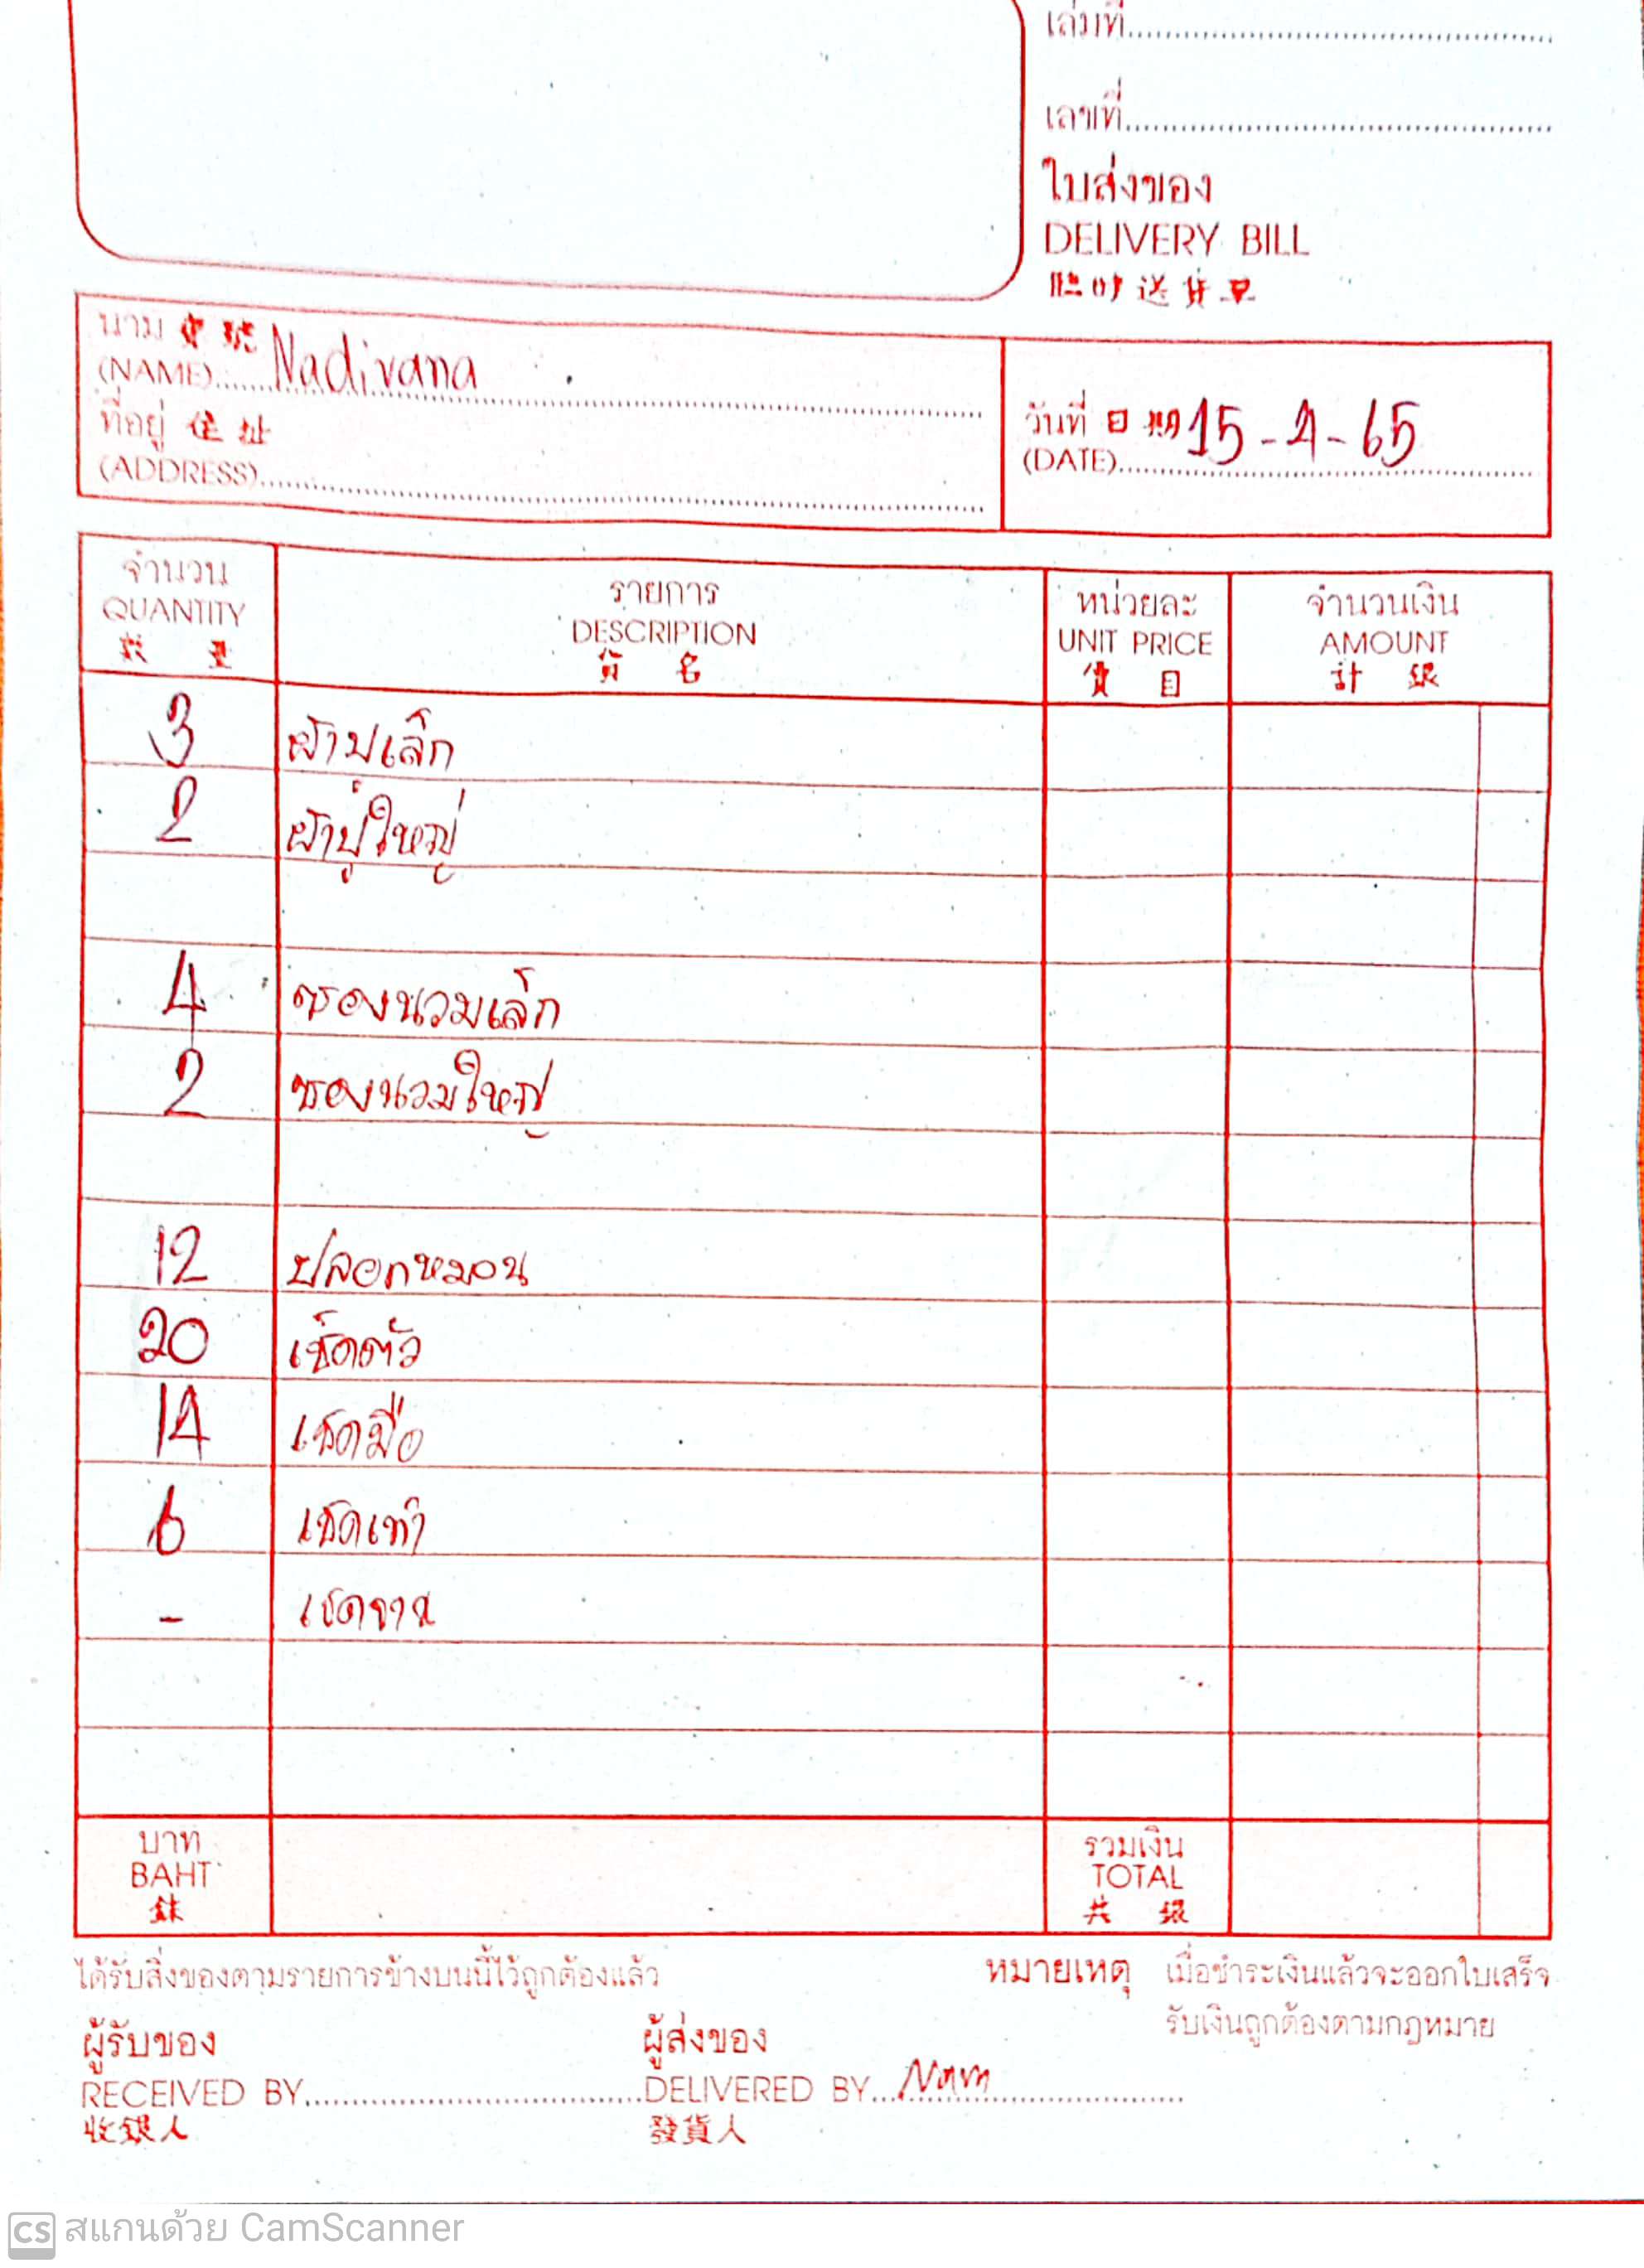 เล่มที่
เลขที่
ใบส่งของ
DELIVERY BILL
臨時送貨單
นาม 寶號
(NAME) Nadivana
ที่อยู่ 住址
(ADDRESS)
วันที่ 日期 15-4-65
(DATE)
จำนวน รายการ หน่วยละ จำนวนเงิน
QUANTITY DESCRIPTION UNIT PRICE AMOUNT
數量 貨名 價目 計銀
3 ผ้าปูเล็ก
2 ผ้าปูใหญ่
4 ซองนวมเล็ก
2 ซองนวมใหญ่
12 ปลอกหมอน
20 เช็ดตัว
14 เช็ดมือ
6 เช็ดเท้า
- เช็ดจาน
บาท รวมเงิน
BAHT TOTAL
銖 共銀
ได้รับสิ่งของตามรายการข้างบนนี้ไว้ถูกต้องแล้ว หมายเหตุ เมื่อชำระเงินแล้วจะออกใบเสร็จ
รับเงินถูกต้องตามกฎหมาย
ผู้รับของ ผู้ส่งของ
RECEIVED BY DELIVERED BY Nam
收銀人 發貨人
CS สแกนด้วย CamScanner